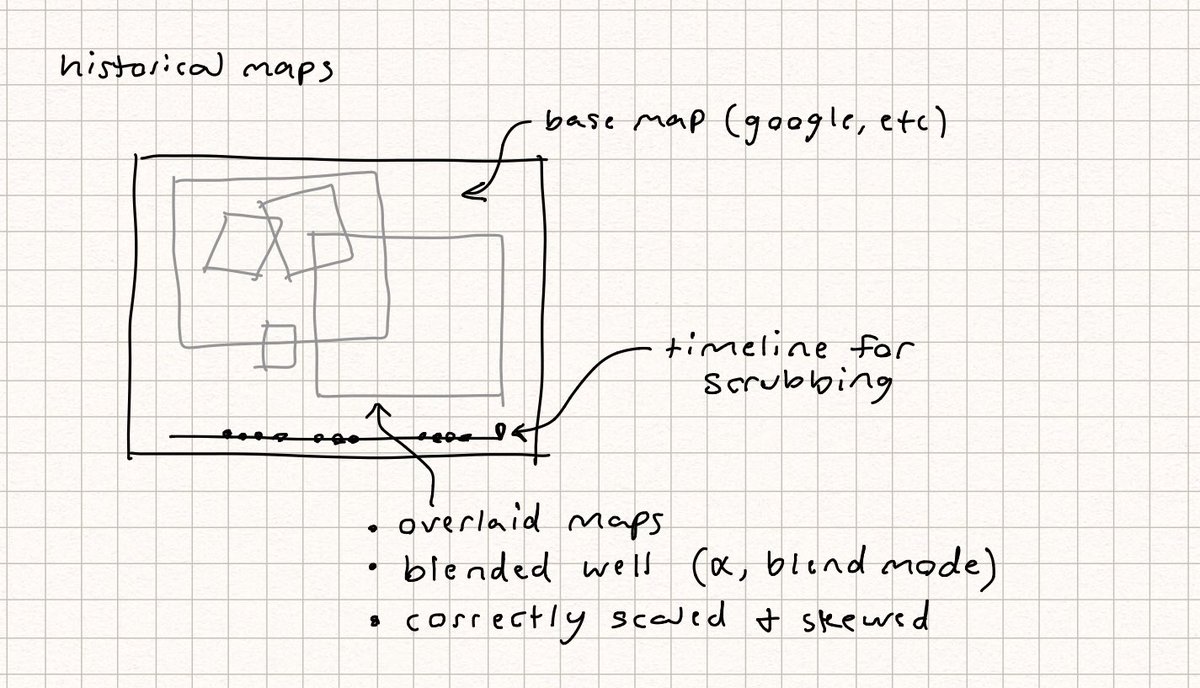 historical maps
base map (google, etc)
timeline for
scrubbing
• overlaid maps
• blended well (α, blend mode)
• correctly scaled + skewed